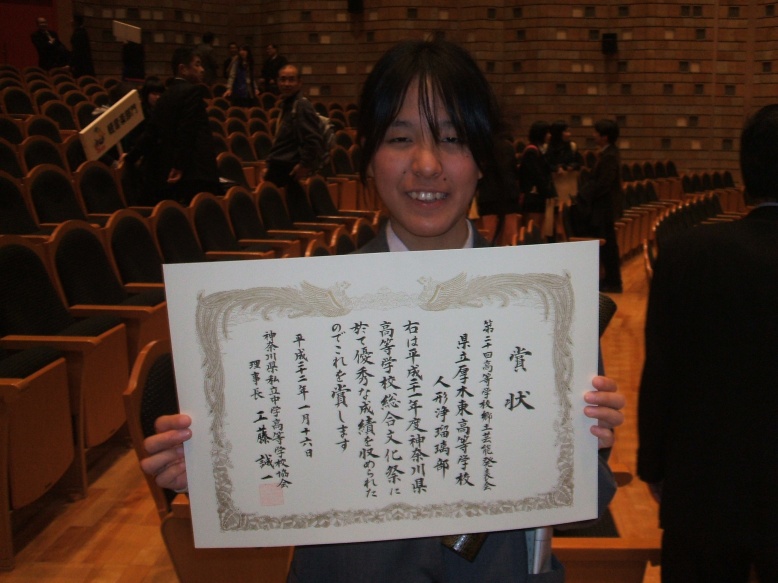 賞状
第二十回高等学校郷土芸能発表会
県立厚木東高等学校
人形浄瑠璃部
右は平成二十一年度神奈川県
高等学校総合文化祭に
於て優秀な成績を収められた
のでこれを賞します
平成二十二年一月十六日
神奈川県私立中学高等学校協会
理事長 工藤誠一